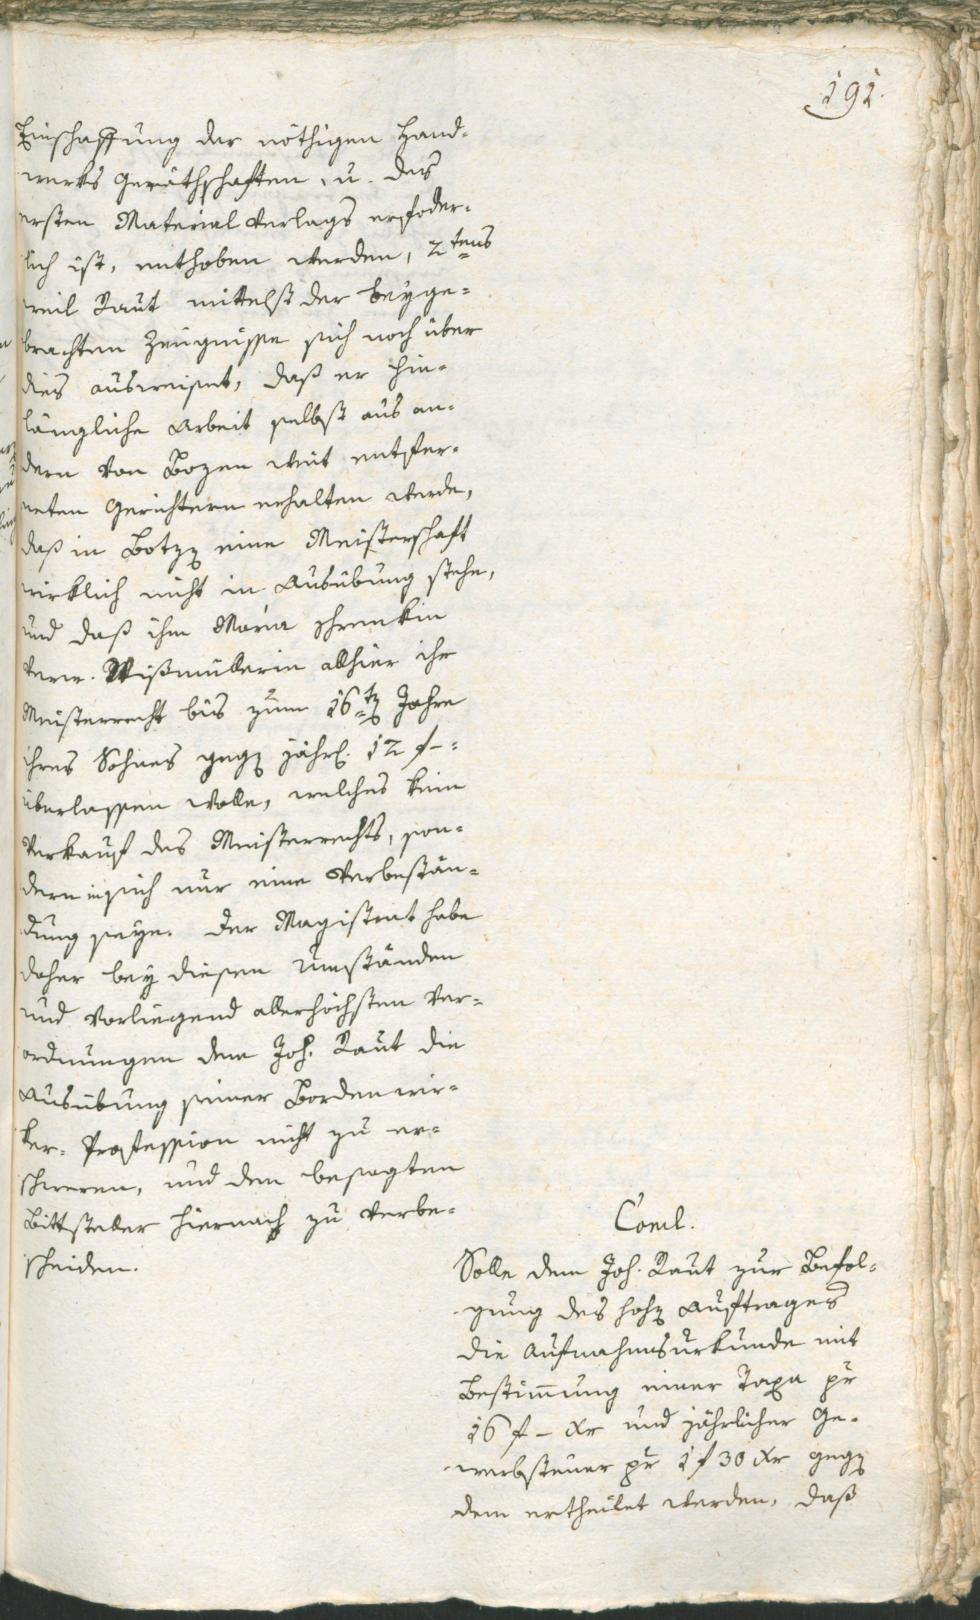 191.
Einschaffung der nöthigen Hand-
werks Geräthschaften, u. des
ersten Material Verlags erfoder-
lich ist, enthoben werden, 2tens
weil Raut mittelst der beyge-
brachten Zeugnisse sich noch über
dies ausweiset, daß er hin-
längliche Arbeit selbst aus an-
dern von Bozen weit entfer-
neten Gerichtern erhalten werde,
daß in Botzen eine Meisterschaft
wirklich nicht in Ausübung stehe,
und daß ihm Maria Schrenkin
verw. Wißmüllerin allhier ihr
Meisterrecht bis zum 16ten Jahre
ihres Sohnes gegen jährl. 12 f -:
überlassen wolle, welches kein
Verkauf des Meisterrechts, son-
dern in sich nur eine Verbestän-
dung seye. Der Magistrat habe
daher bey diesen Umständen
und vorliegend allerhöchsten Ver-
ordnungen dem Joh. Raut die
Ausübung seiner Bordenwir-
ker-Profession nicht zu er-
schweren, und den besagten
Bittsteller hiernach zu verbe-
scheiden.
Concl.
Solle dem Joh. Raut zur Befol-
gung des hohen Auftrages
die Aufnahmsurkunde mit
Bestimmung einer Taxa pr
16 f - xr und jährlicher Ge-
werbsteuer pr 1 f 30 xr gegen
dem ertheilet werden, daß